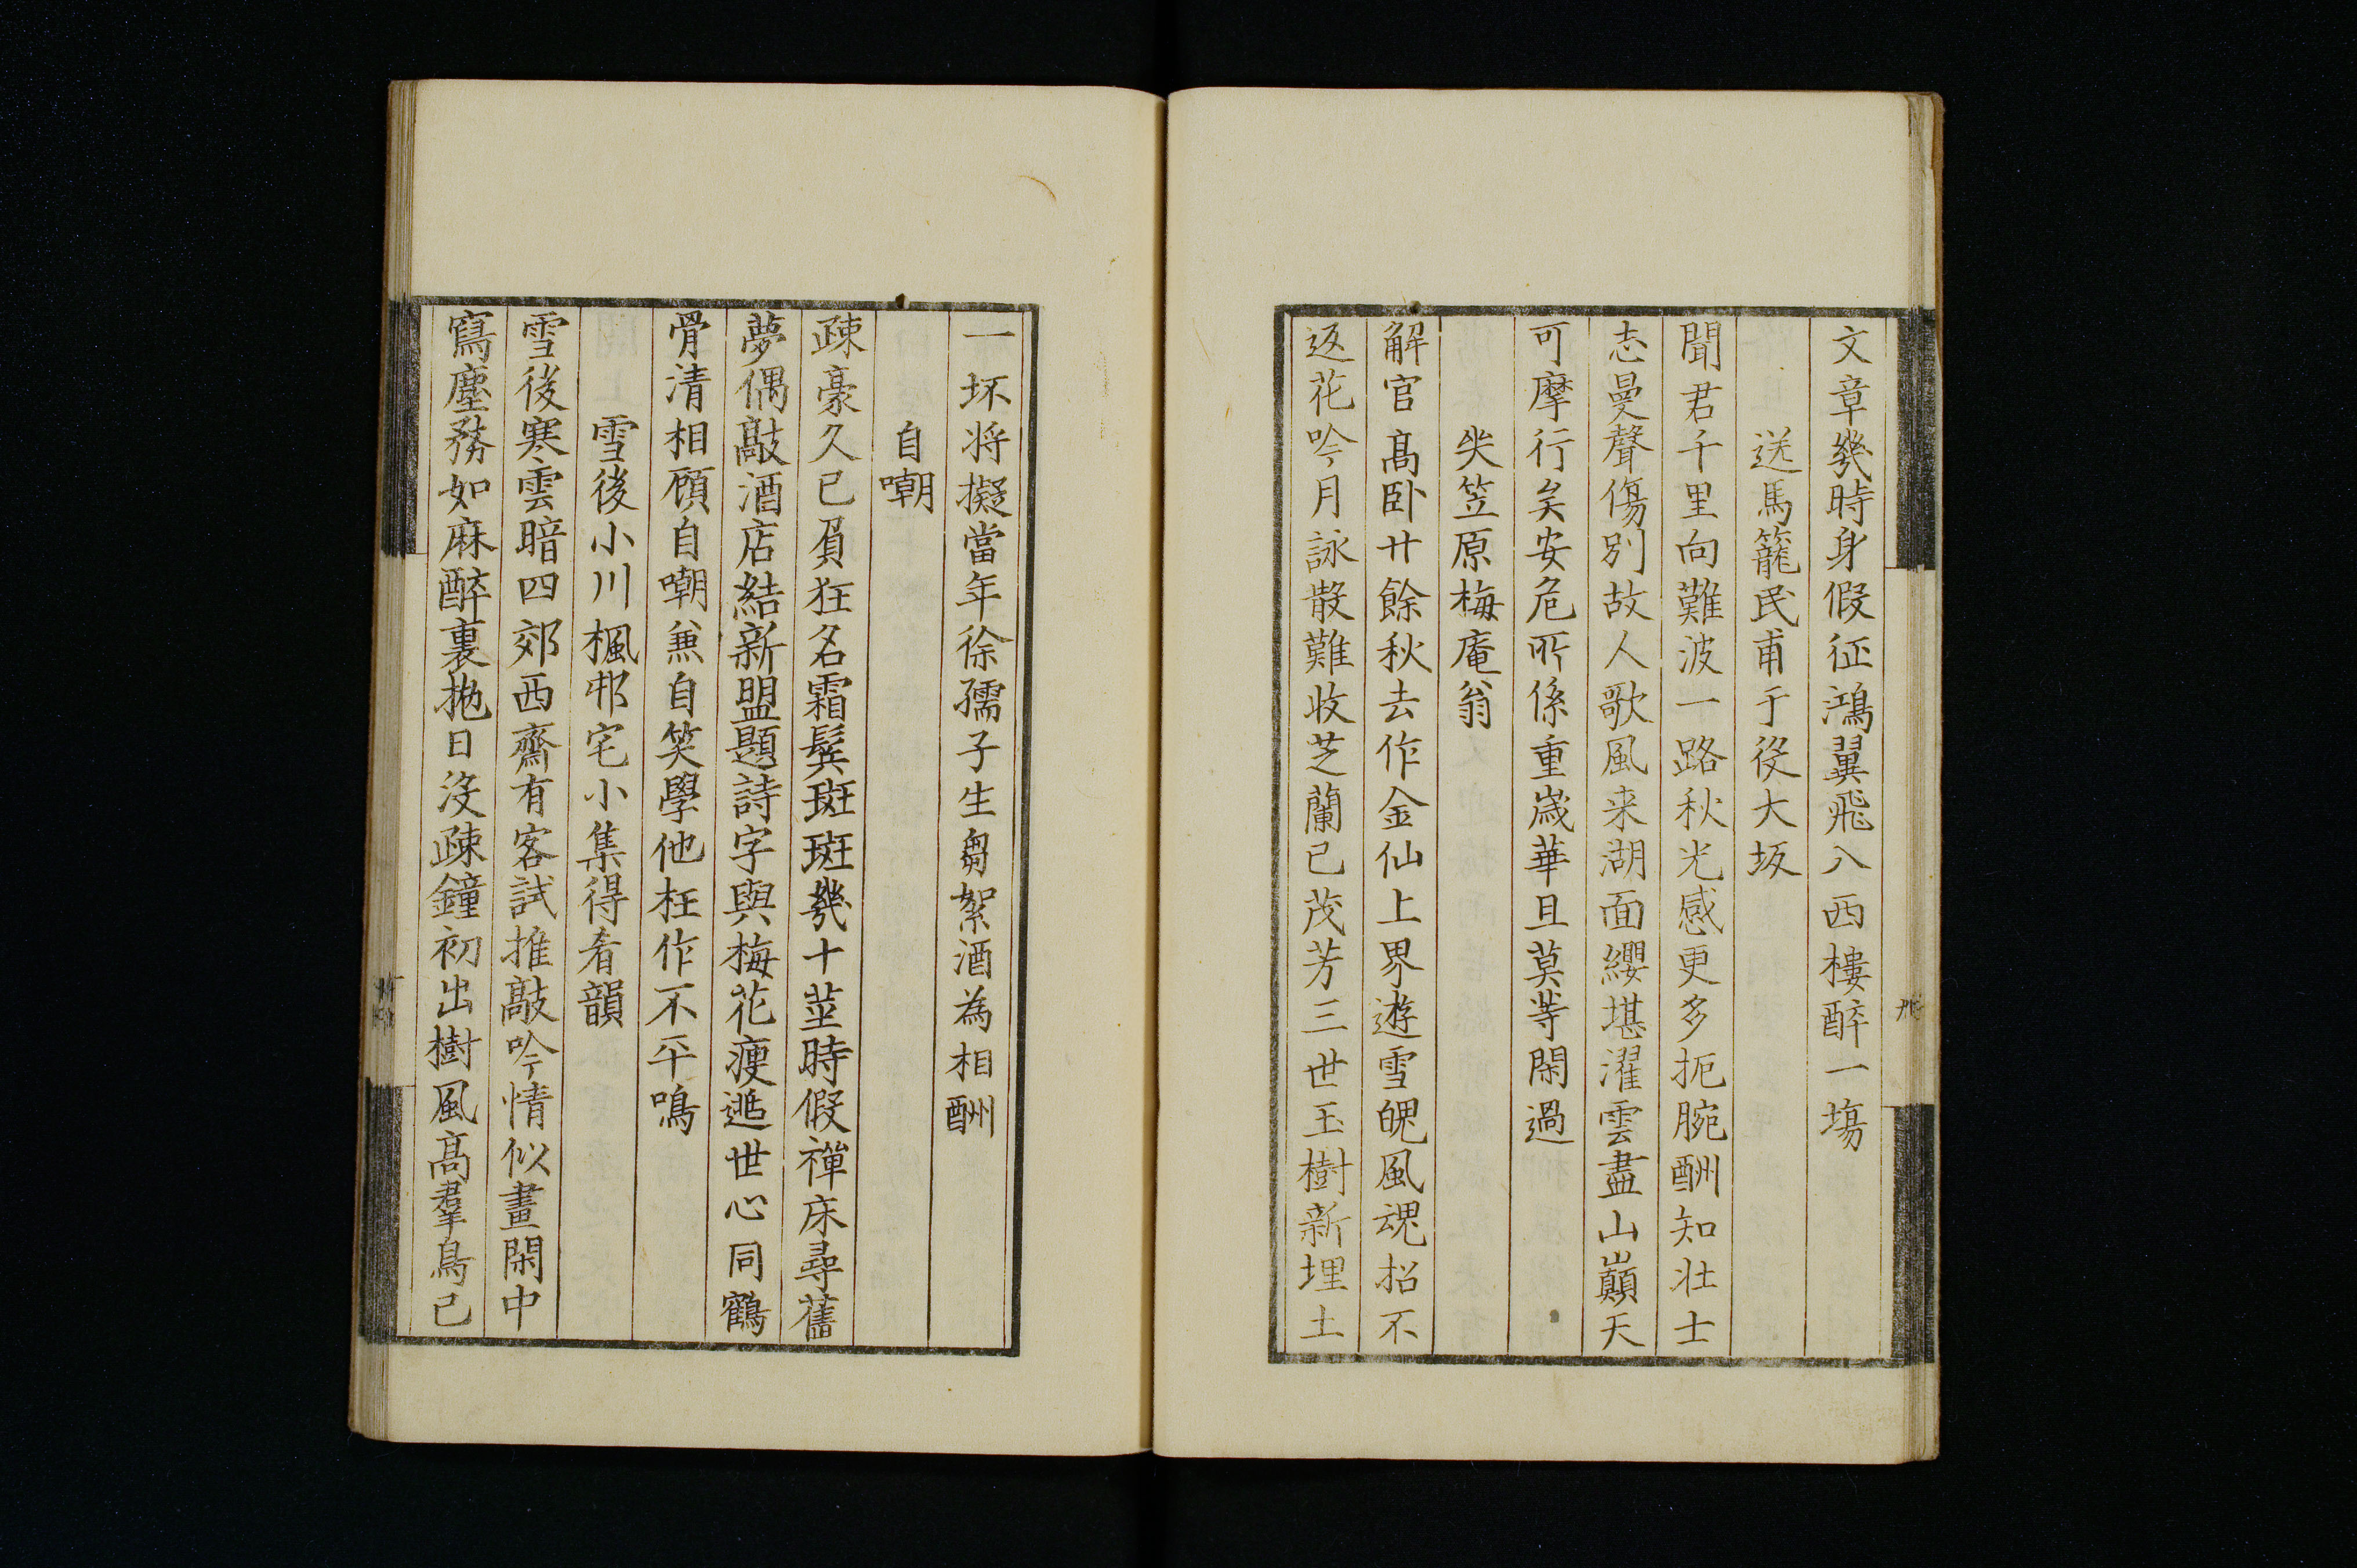 文章幾時身假征鴻翼飛入西樓醉一塲
送馬籠民甫于役大坂
聞君千里向難波一路秋光感更多扼腕酬知壮士
志曼聲傷別故人歌風来湖面纓堪濯雲盡山巔天
可摩行矣安危所係重歳華且莫等閑過
哭笠原梅庵翁
解官髙卧廿餘秋去作金仙上界遊雪魄風魂招不
返花吟月詠散難收芝蘭已茂芳三世玉樹新埋土
一坏将擬當年徐孺子生芻絮酒為相酬
自嘲
疎豪久已負狂名霜鬂斑斑幾十莖時假禪床尋舊
夢偶敲酒店結新盟題詩字與梅花瘦遯世心同鶴
骨清相顧自嘲兼自笑學他枉作不平鳴
雪後小川楓邨宅小集得肴韻
雪後寒雲暗四郊西齋有客試推敲吟情似畫閑中
寫塵務如麻醉裏抛日沒疎鐘初出樹風髙羣鳥已